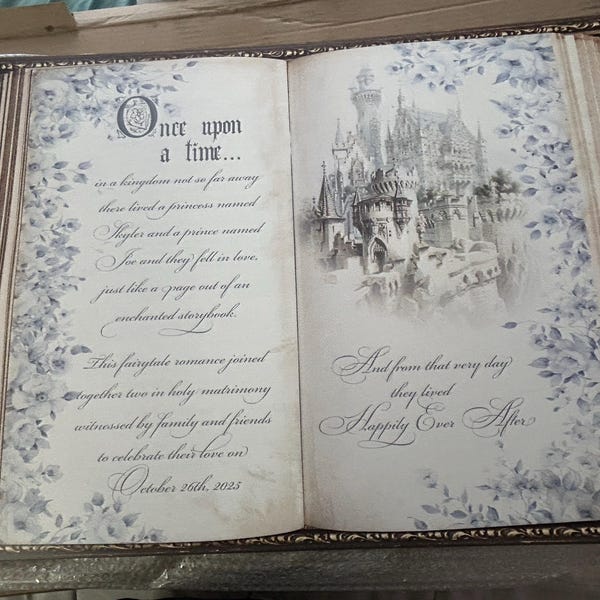 Once upon
a time...
in a kingdom not so far away
there lived a princess named
Skyler and a prince named
Joe and they fell in love,
just like a page out of an
enchanted storybook.
This fairytale romance joined
together two in holy matrimony
witnessed by family and friends
to celebrate their love on
October 26th, 2025
And from that very day
they lived
Happily Ever After